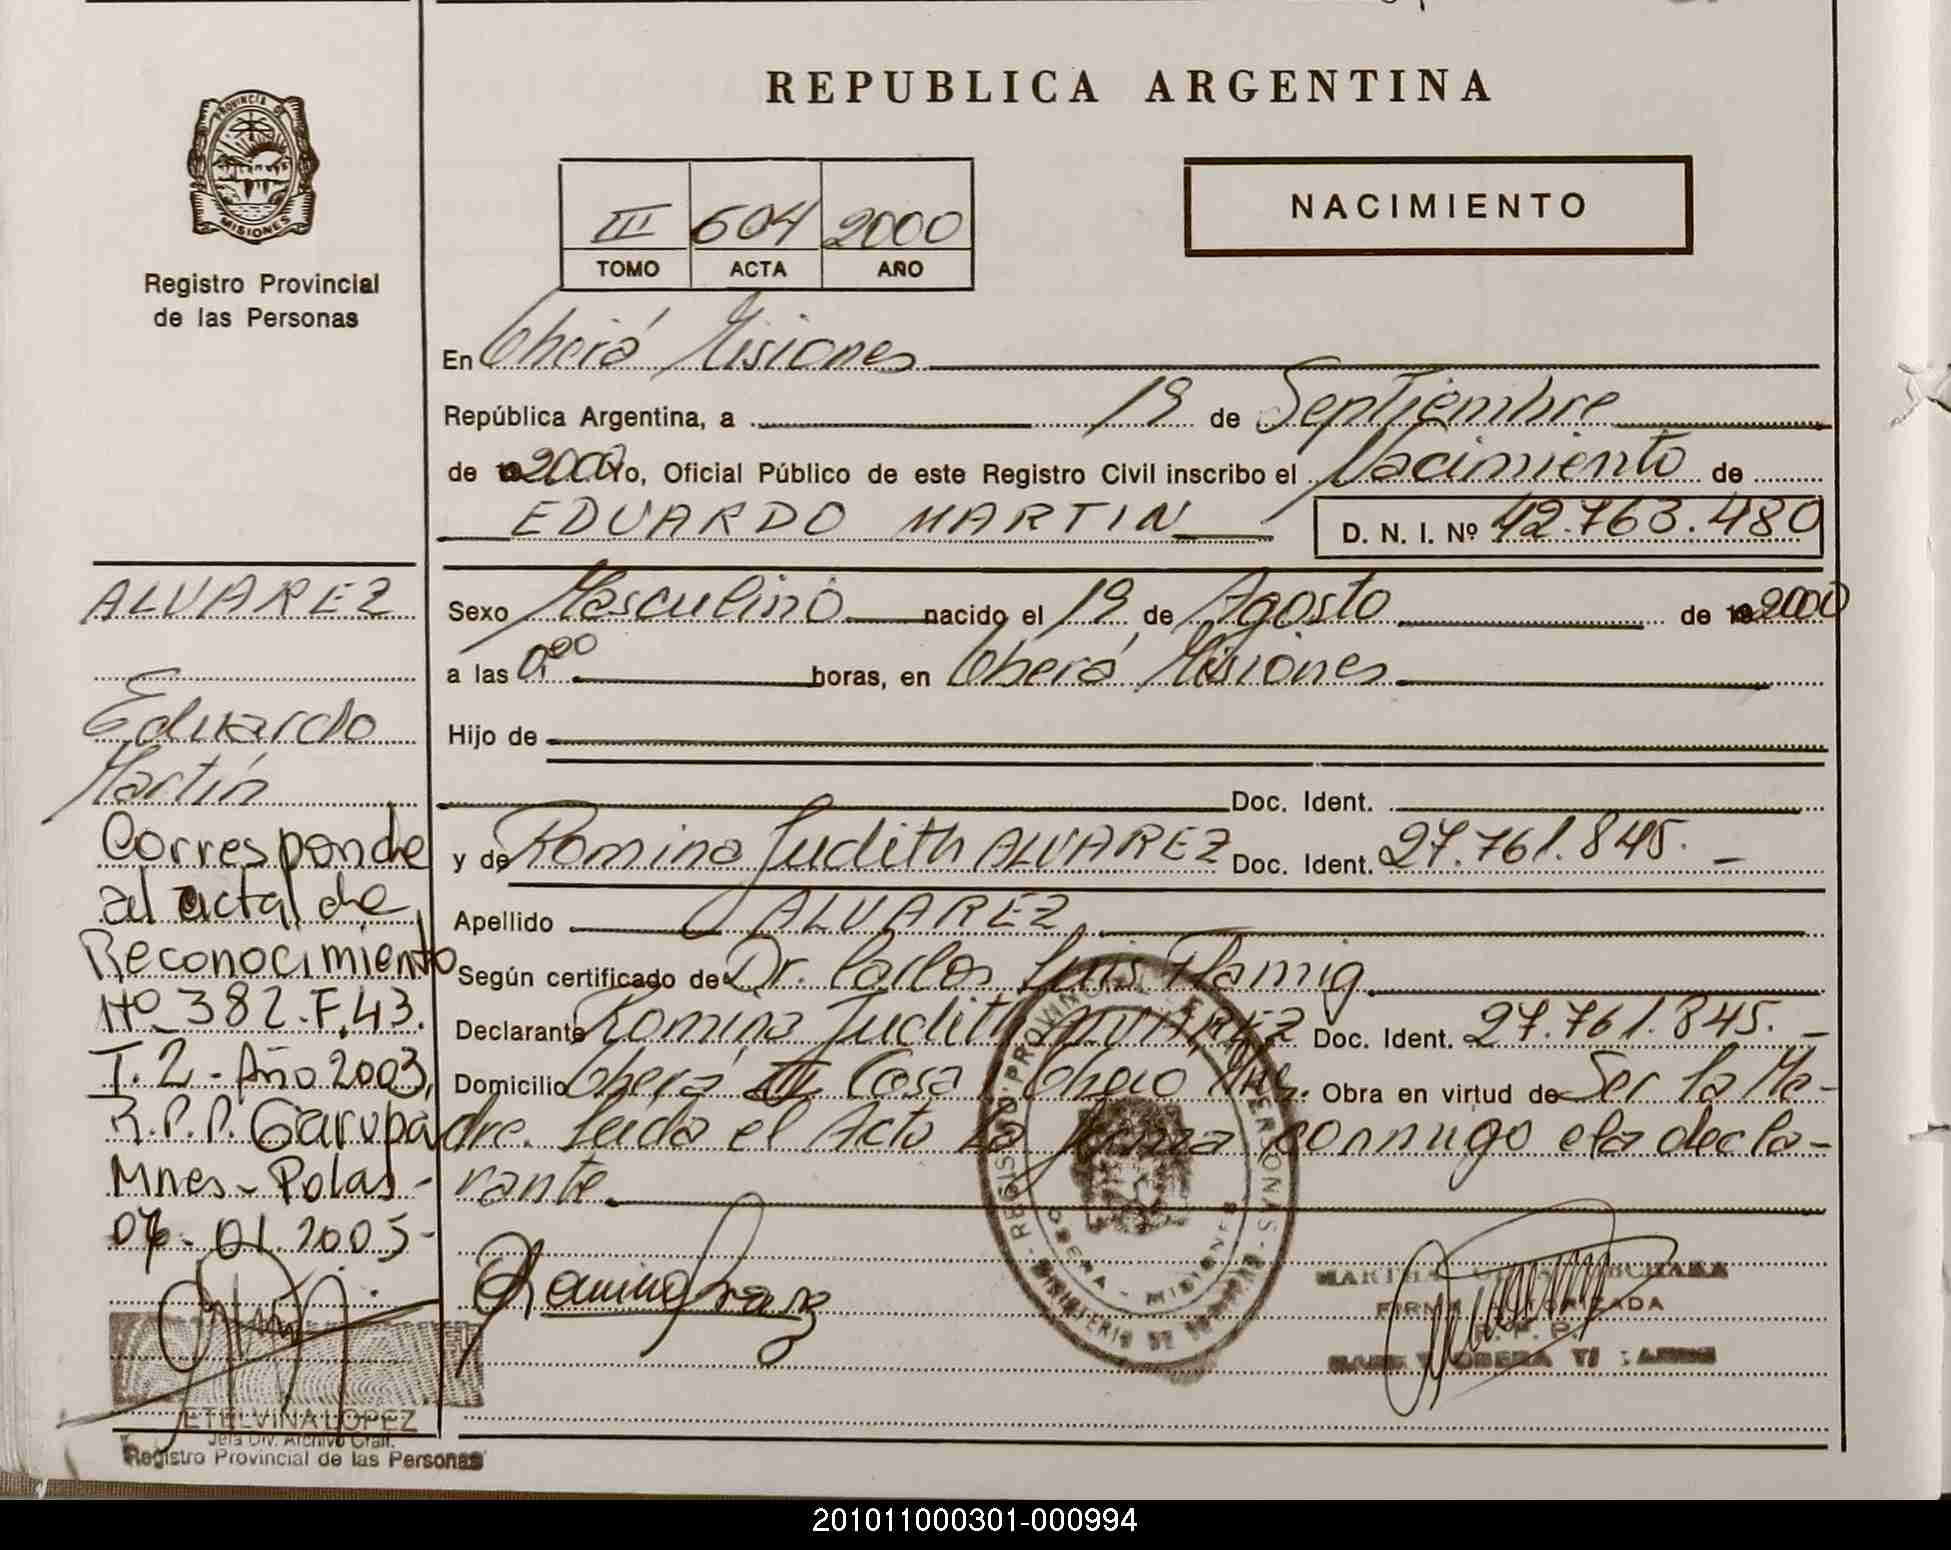 REPUBLICA ARGENTINA
PROVINCIA DE
MISIONES
Registro Provincial
de las Personas
III 604 2000
TOMO ACTA AÑO
NACIMIENTO
En Oberá Misiones
República Argentina, a 19 de Septiembre
de 2000 Yo, Oficial Público de este Registro Civil inscribo el Nacimiento de
EDUARDO MARTIN D. N. I. Nº 42.763.480
Sexo Masculino nacido el 19 de Agosto de 2000
a las 0,00 horas, en Oberá Misiones
Hijo de
Doc. Ident.
y de Romina Judith ALVAREZ Doc. Ident. 27.761.845.
Apellido ALVAREZ
Según certificado de Dr. Carlos Luis
Declarante Romina Judith ALVAREZ Doc. Ident. 27.761.845.
Domicilio Oberá Casa Obra en virtud de Ser la Ma-
dre. Leida el Acta la firma conmigo la decla-
rante
ALVAREZ
Eduardo
Martín
Corresponde
al acta de
Reconocimiento
Nº 382.F.43.
T.2 - Año 2003,
R.P.P. Garupá
Mnes - Posas -
01.2005-
ETELVINA LOPEZ
Registro Provincial de las Personas
PROVINCIAL DE LAS PERSONAS
OBERA - MISIONES
MINISTERIO DE GOBIERNO
FIRMA AUTORIZADA
R. P. P.
201011000301-000994